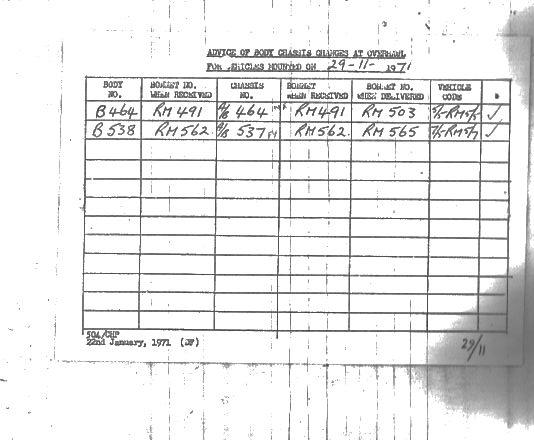 ADVICE OF BODY CHASSIS CHANGES AT OVERHAUL
FOR VEHICLES MOUNTED ON 29-11- 1971
BODY NO. BONNET NO. WHEN RECEIVED CHASSIS NO. BONNET WHEN RECEIVED BONNET NO. WHEN DELIVERED VEHICLE CODE
B464 RM 491 464 RM491 RM 503 ✓
B538 RM562 537 RM562 RM 565 ✓
504/CHP
22nd January, 1971 (JF)
29/11